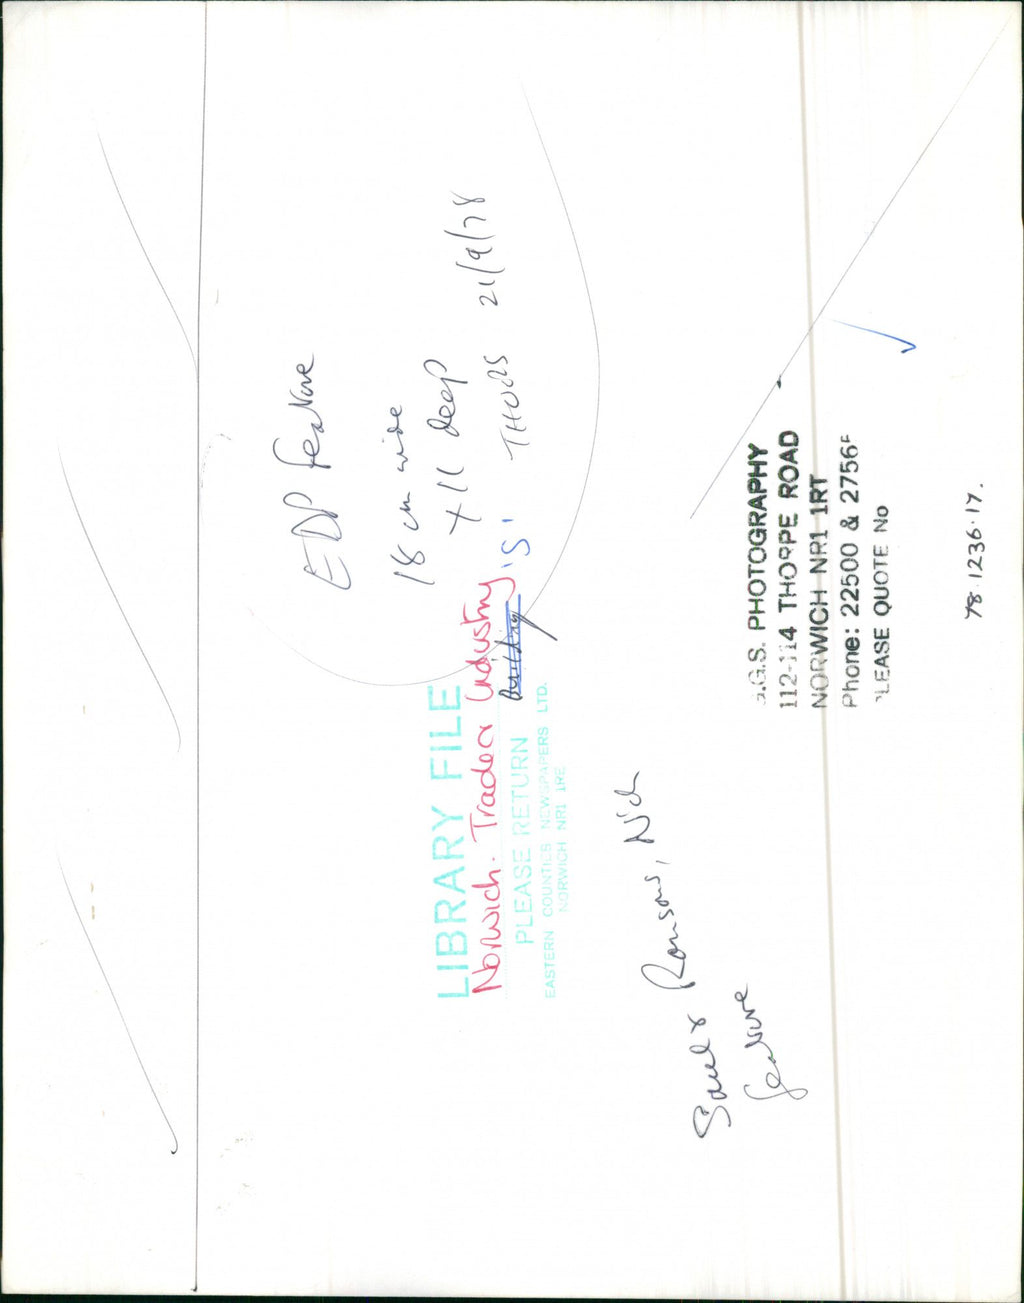 EDP feature
18 cm wide
x 11 deep
THURS 21/9/78
LIBRARY FILE
Norwich. Trade & Industry
Building 'S'
PLEASE RETURN
EASTERN COUNTIES NEWSPAPERS LTD.
NORWICH NR1 1RE
feature
.G.S. PHOTOGRAPHY
112-114 THORPE ROAD
NORWICH NR1 1RT
Phone: 22500 & 2756
LEASE QUOTE No
78.1236.17.